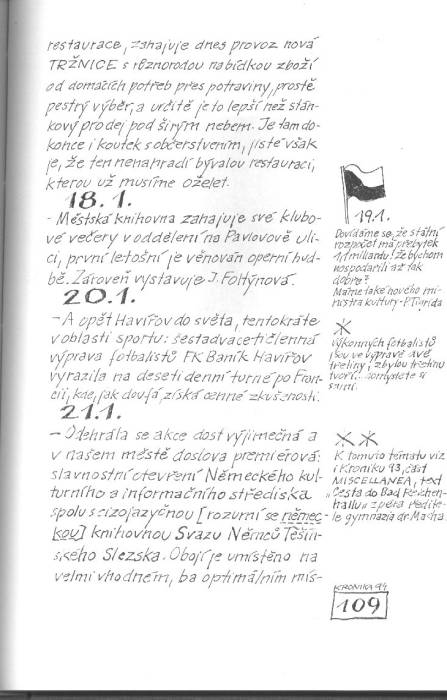 restaurace, zahajuje dnes provoz nová
TRŽNICE s různorodou nabídkou zboží
od domácích potřeb přes potraviny, prostě
pestrý výběr, a určitě je to lepší než stán-
kový prodej pod širým nebem. Je tam do-
konce i koutek s občerstvením, jisté však
je, že ten nenahradí bývalou restauraci,
kterou už musíme oželet.
18.1.
- Městská knihovna zahajuje své klubo-
vé večery v oddělení na Pavlovově uli-
ci, první letošní je věnován operní hud-
bě. Zároveň vystavuje J. Foltýnová.
20.1.
- A opět Havířov do světa, tentokráte
v oblasti sportu: šestadvacetičlenná
výprava fotbalistů FK Baník Havířov
vyrazila na desetidenní turné po Fran-
cii, kde, jak doufá, získá cenné zkušenosti.
21.1.
- Odehrála se akce dost výjimečná a
v našem městě doslova premiérová:
slavnostní otevření Německého kul-
turního a informačního střediska
spolu s cizojazyčnou [rozumí se němec-
kou] knihovnou Svazu Němců Těšín-
ského Slezska. Obojí je umístěno na
velmi vhodném, ba optimálním mís-
19.1.
Dovídáme se, že státní
rozpočet má přebytek
1,1 miliardu! Že bychom
hospodařili až tak
dobře?
Máme také nového mi-
nistra kultury - P. Tigrida
*
Výkonných fotbalistů
jsou ve výpravě dvě
třetiny, zbylou třetinu
tvoří... domyslete si
sami.
* *
K tomuto tématu viz
i Kroniku 93, část
MISCELLANEA, text
"Cesta do Bad Reichen-
hallu" z péra ředite-
le gymnázia dr. Macha.
KRONIKA 94
109